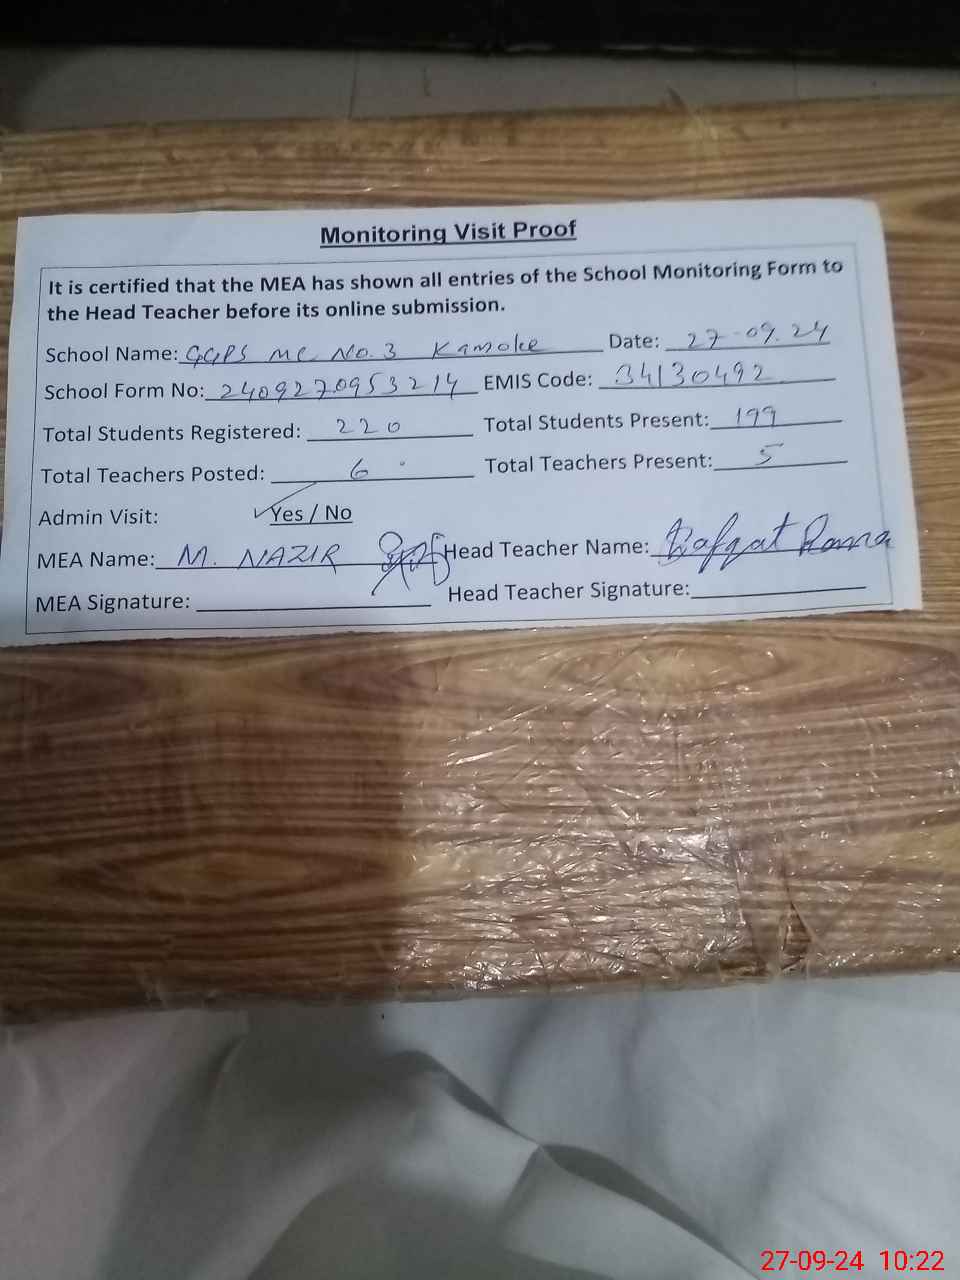 Monitoring Visit Proof
It is certified that the MEA has shown all entries of the School Monitoring Form to
the Head Teacher before its online submission.
School Name: GGPS MC No. 3 Kamoke Date: 27-09.24
School Form No: 2409270953214 EMIS Code: 34130492
Total Students Registered: 220 Total Students Present: 199
Total Teachers Posted: 6 Total Teachers Present: 5
Admin Visit: Yes / No
MEA Name: M. NAZIR Head Teacher Name:
MEA Signature: Head Teacher Signature:
27-09-24 10:22